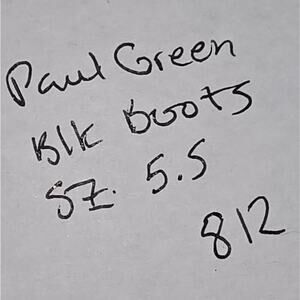 Paul Green
Blk Boots
SZ. 5.5
812